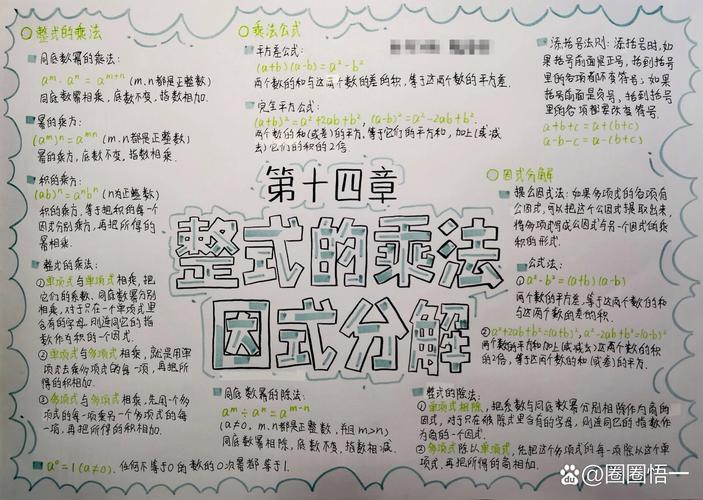 整式的乘法
同底数幂的乘法:
aᵐ·aⁿ=aᵐ⁺ⁿ (m.n都是正整数)
同底数幂相乘,底数不变,指数相加.
幂的乘方:
(aᵐ)ⁿ=aᵐⁿ (m.n都是正整数)
幂的乘方,底数不变,指数相乘.
积的乘方:
(ab)ⁿ=aⁿbⁿ (n为正整数)
积的乘方,等于把积的每一个
因式分别乘方,再把所得的
幂相乘.
整式的乘法:
①单项式与单项式相乘,把
它们的系数、同底数幂分别
相乘,对于只在一个单项式里
含有的字母.则连同它的指
数作为积的一个因式.
②单项式与多项式相乘,就是用单
项式去乘多项式的每一项,再把所
得的积相加.
③多项式与多项式相乘,先用一个多
项式的每一项乘另一个多项式的每
一项,再把所得的积相加.
a⁰=1(a≠0).任何不等于0的数的0次幂都等于1.
乘法公式
平方差公式:
(a+b)(a-b)=a²-b²
两个数的和与这两个数的差的积,等于这两个数的平方差.
完全平方公式:
(a+b)²=a²+2ab+b², (a-b)²=a²-2ab+b².
两个数的和(或差)的平方,等于它们的平方和,加上(或减
去)它们的积的2倍.
添括号法则:添括号时,如
果括号前面是正号,括到括号
里的各项都不变符号;如果
括号前面是负号,括到括号
里的各项都要改变符号.
a+b+c=a+(b+c)
a-b-c=a-(b+c)
第十四章
整式的乘法
因式分解
因式分解
提公因式法:如果多项式的各项有
公因式,可以把这个公因式提取出来,
将多项式写成公因式与另一个因式的乘
积的形式.
公式法:
①a²-b²=(a+b)(a-b)
两个数的平方差,等于这两个数的和
与这两个数的差的积.
②a²+2ab+b²=(a+b)²,a²-2ab+b²=(a-b)²
两个数的平方和加上(或减去)这两个数的积
的2倍,等于这两个数的和(或差)的平方.
同底数幂的除法:
aᵐ÷aⁿ=aᵐ⁻ⁿ
(a≠0,m.n都是正整数,且m>n)
同底数幂相除,底数不变,指数相减.
整式的除法:
①单项式相除,把系数与同底数幂分别相除作为商的
因式,对于只在被除式里含有的字母,则连同它的指数
作为商的一个因式.
②多项式除以单项式,先把这个多项式的每一项除以这个单
项式.再把所得的商相加.
@圈圈悟一